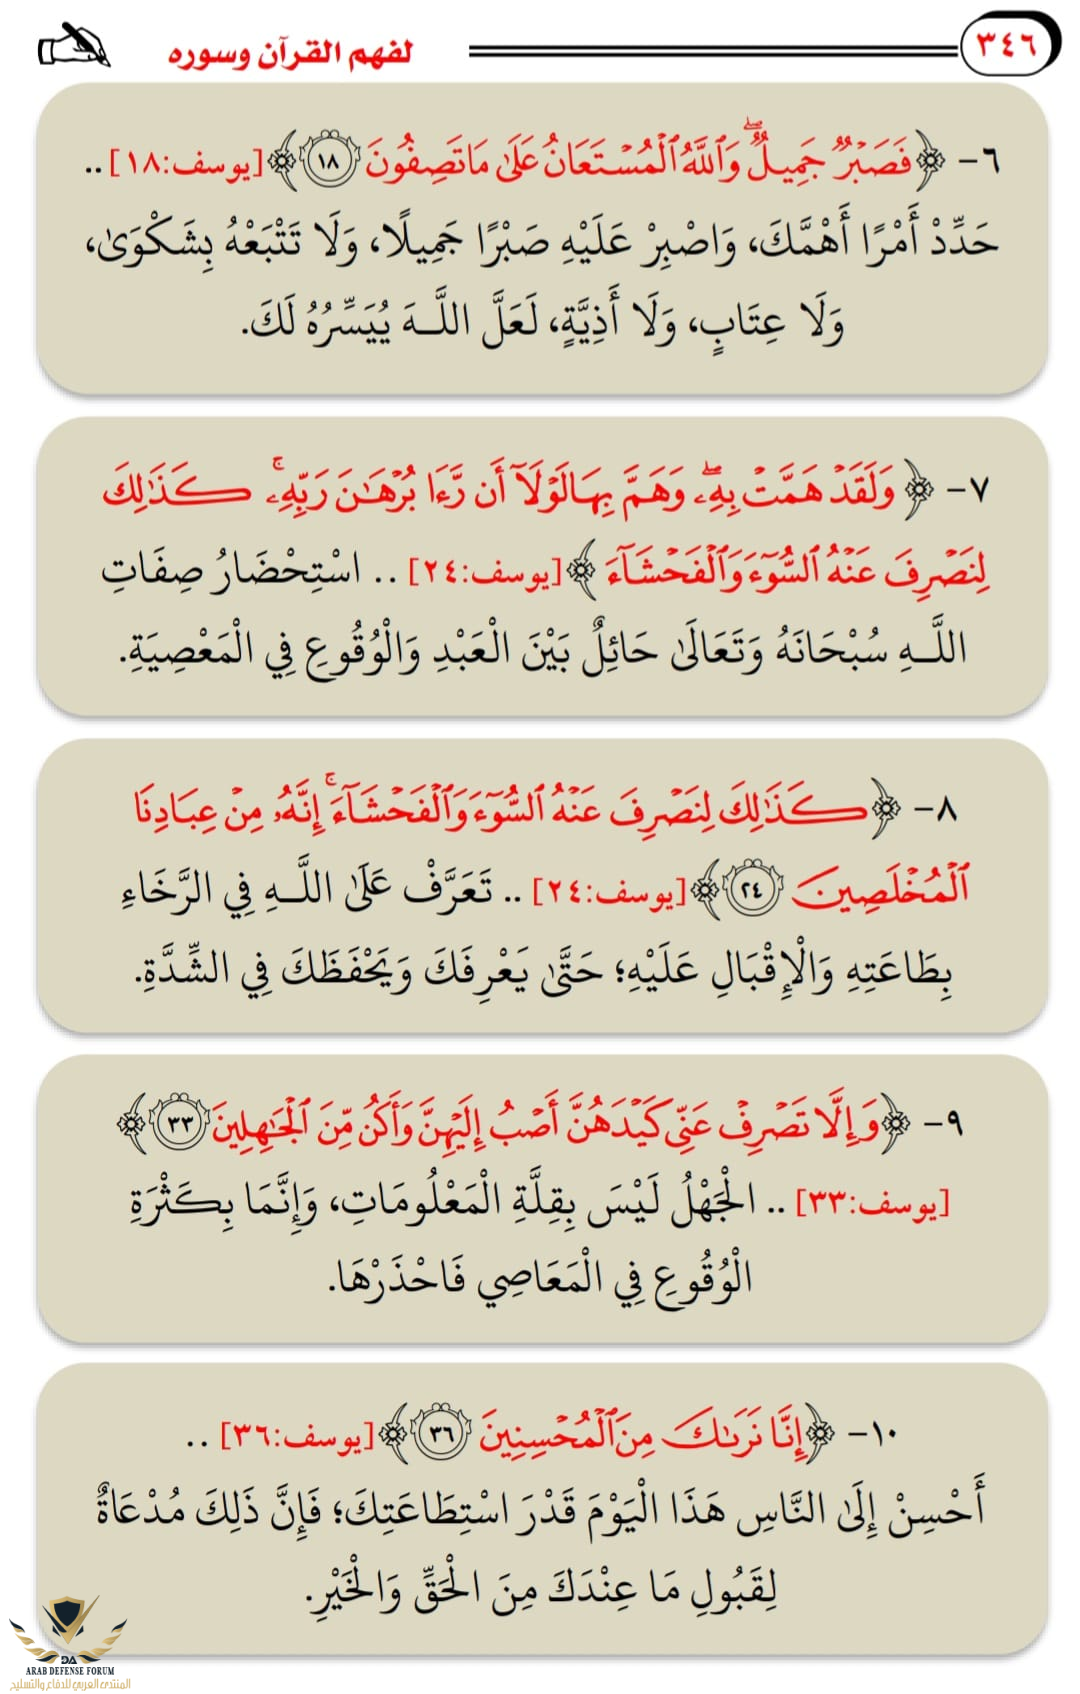 ٣٤٦
لفهم القرآن وسوره
٦- ﴿فَصَبْرٌ جَمِيلٌ ۖ وَٱللَّهُ ٱلْمُسْتَعَانُ عَلَىٰ مَا تَصِفُونَ ١٨﴾ [يوسف:١٨] ..
حَدِّدْ أَمْرًا أَهَمَّكَ، وَاصْبِرْ عَلَيْهِ صَبْرًا جَمِيلًا، وَلَا تَتْبَعْهُ بِشَكْوَىٰ،
وَلَا عِتَابٍ، وَلَا أَذِيَّةٍ، لَعَلَّ اللَّـهَ يُيَسِّرُهُ لَكَ.
٧- ﴿وَلَقَدْ هَمَّتْ بِهِۦ ۖ وَهَمَّ بِهَا لَوْلَآ أَن رَّءَا بُرْهَـٰنَ رَبِّهِۦ ۚ كَذَٰلِكَ
لِنَصْرِفَ عَنْهُ ٱلسُّوٓءَ وَٱلْفَحْشَآءَ﴾ [يوسف:٢٤] .. اسْتِحْضَارُ صِفَاتِ
اللَّـهِ سُبْحَانَهُ وَتَعَالَىٰ حَائِلٌ بَيْنَ الْعَبْدِ وَالْوُقُوعِ فِي الْمَعْصِيَةِ.
٨- ﴿كَذَٰلِكَ لِنَصْرِفَ عَنْهُ ٱلسُّوٓءَ وَٱلْفَحْشَآءَ ۚ إِنَّهُۥ مِنْ عِبَادِنَا
ٱلْمُخْلَصِينَ ٢٤﴾ [يوسف:٢٤] .. تَعَرَّفْ عَلَىٰ اللَّـهِ فِي الرَّخَاءِ
بِطَاعَتِهِ وَالْإِقْبَالِ عَلَيْهِ؛ حَتَّىٰ يَعْرِفَكَ وَيَحْفَظَكَ فِي الشِّدَّةِ.
٩- ﴿وَإِلَّا تَصْرِفْ عَنِّى كَيْدَهُنَّ أَصْبُ إِلَيْهِنَّ وَأَكُن مِّنَ ٱلْجَـٰهِلِينَ ٣٣﴾
[يوسف:٣٣] .. الْجَهْلُ لَيْسَ بِقِلَّةِ الْمَعْلُومَاتِ، وَإِنَّمَا بِكَثْرَةِ
الْوُقُوعِ فِي الْمَعَاصِي فَاحْذَرْهَا.
١٠- ﴿إِنَّا نَرَىٰكَ مِنَ ٱلْمُحْسِنِينَ ٣٦﴾ [يوسف:٣٦] ..
أَحْسِنْ إِلَىٰ النَّاسِ هَذَا الْيَوْمَ قَدْرَ اسْتِطَاعَتِكَ؛ فَإِنَّ ذَلِكَ مُدْعَاةٌ
لِقَبُولِ مَا عِنْدَكَ مِنَ الْحَقِّ وَالْخَيْرِ.
DA
ARAB DEFENSE FORUM
المنتدى العربي للدفاع والتسليح